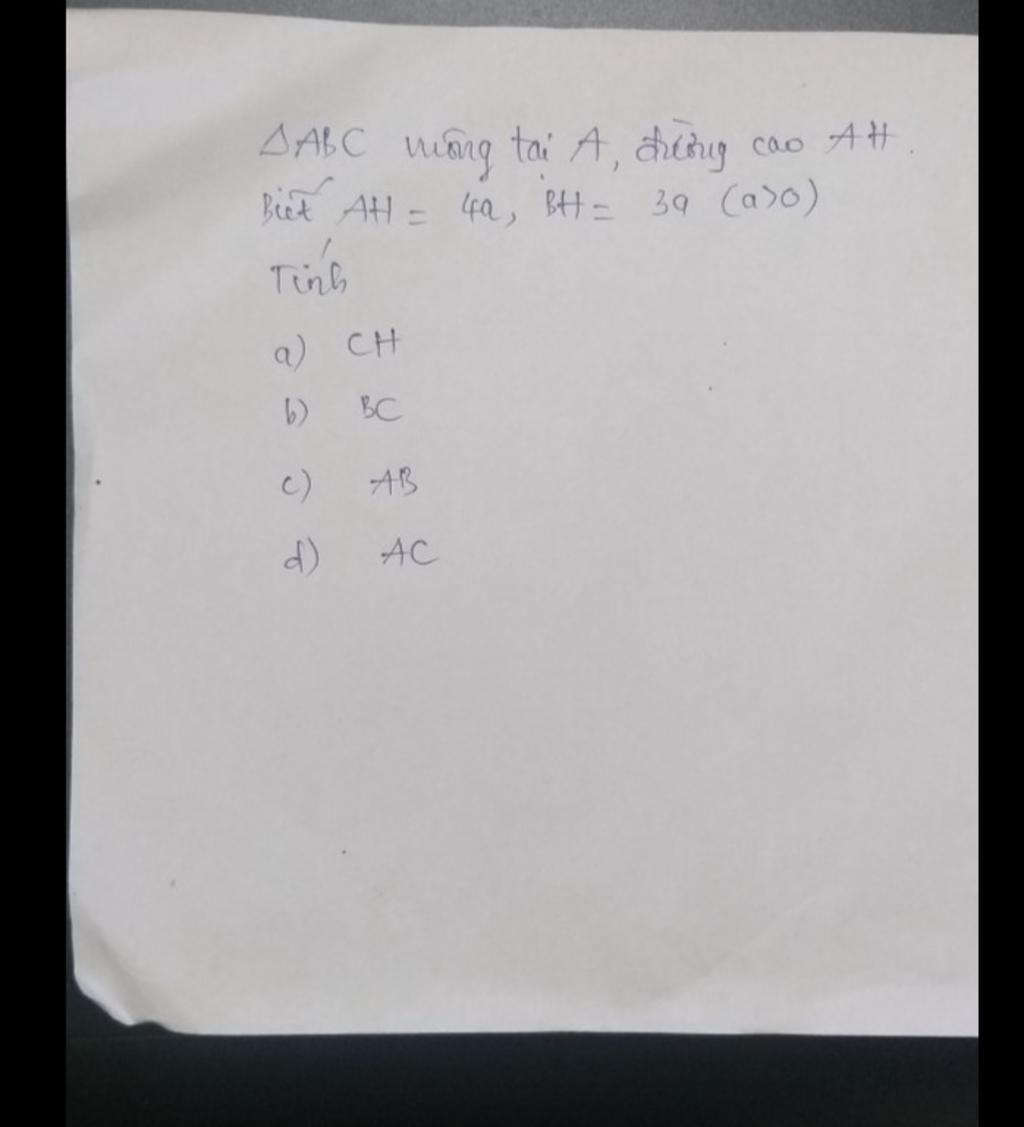 ΔABC vuông tại A, đường cao AH.
Biết AH = 4a, BH = 3a (a>0)
Tính
a) CH
b) BC
c) AB
d) AC